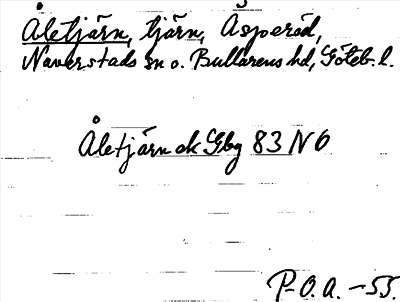 Åletjärn, tjärn, Åsperöd,
Naverstads sn o. Bullarens hd, Göteb. l.
Åletjärn ek Gbg 83 NO
P-O.A. -55.